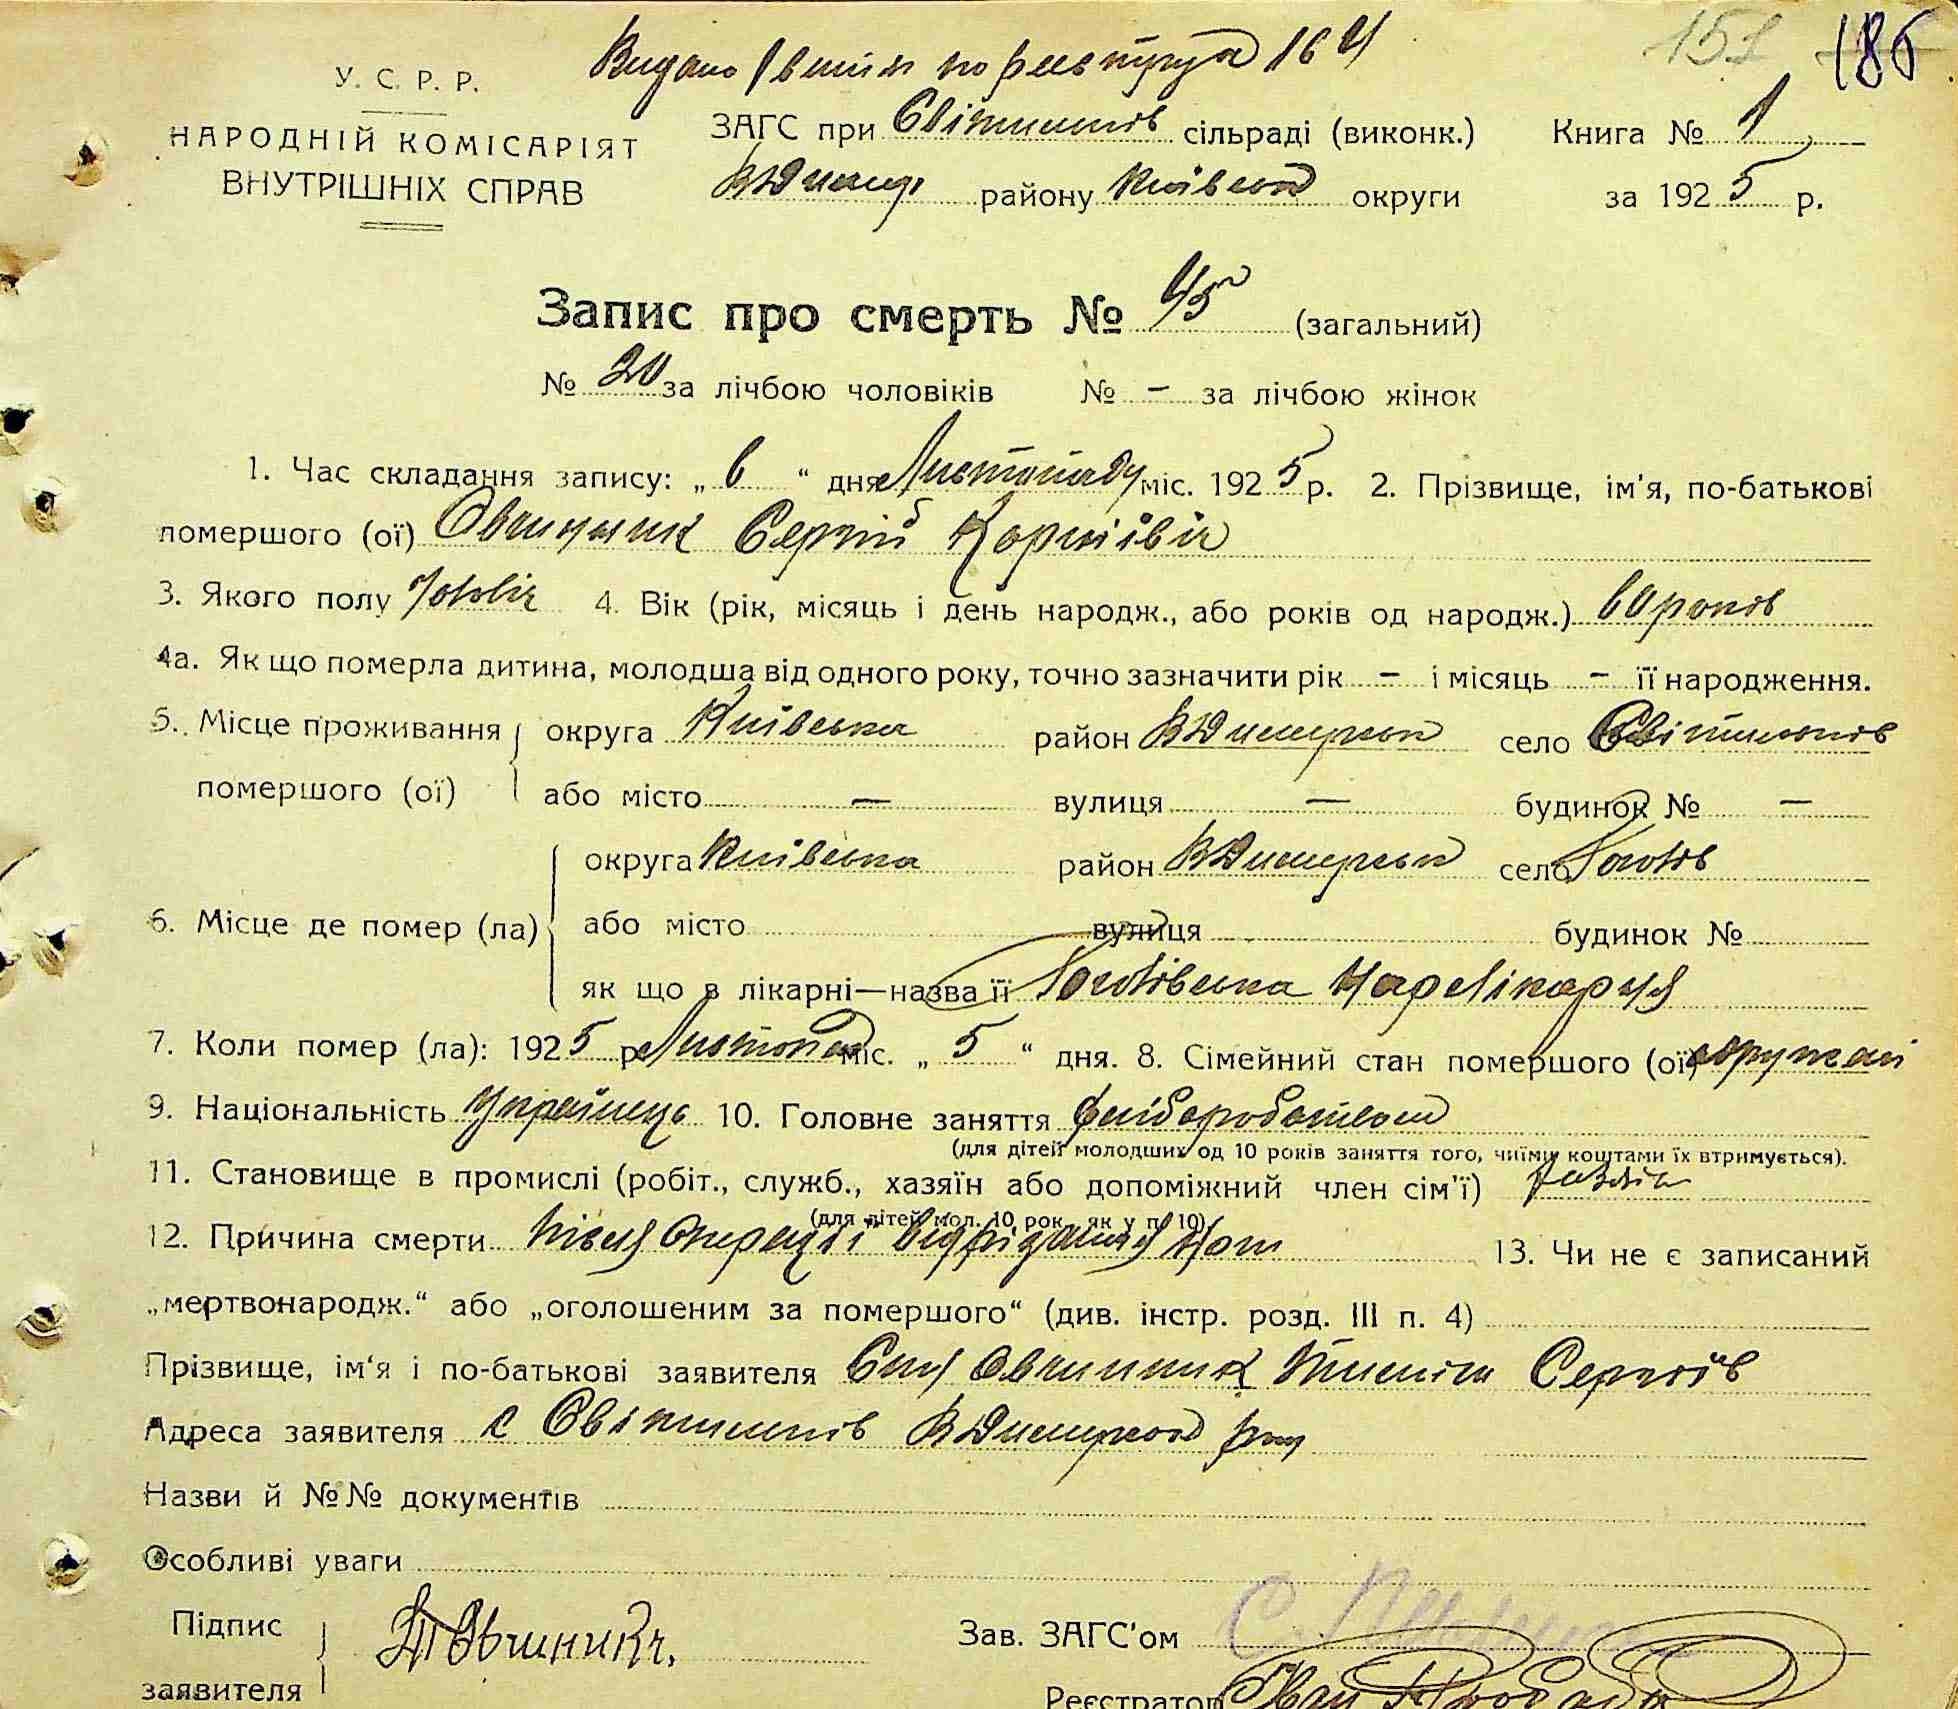 151 186
Видано Івитяг по реєструга 164
У. С. Р. Р.
НАРОДНІЙ КОМІСАРІЯТ
ВНУТРІШНІХ СПРАВ
ЗАГС при сільраді (виконк.) Книга № 1
району Київськой округи за 1925 р.
Запис про смерть № 45 (загальний)
№ 20 за лічбою чоловіків № – за лічбою жінок
1. Час складання запису: „ 6 “ дня Листопаду міс. 1925 р. 2. Прізвище, ім'я, по-батькові
помершого (ої) Овчинник Сергій Корніївіч
3. Якого полу Чоловіч 4. Вік (рік, місяць і день народж., або років од народж.) 60 років
4а. Як що померла дитина, молодша від одного року, точно зазначити рік – і місяць – її народження.
5. Місце проживання округа Київська район В Димерськ село
помершого (ої) або місто — вулиця — будинок № —
округа Київська район В Димерськ село
6. Місце де помер (ла) або місто вулиця будинок №
як що в лікарні—назва її
7. Коли помер (ла): 1925 р. Листопад міс. „ 5 “ дня. 8. Сімейний стан помершого (ої)
9. Національність Українець 10. Головне заняття хліборобством
(для дітей молодших од 10 років заняття того, чиїми коштами їх втримується).
11. Становище в промислі (робіт., служб., хазяїн або допоміжний член сім'ї) хазяїн
(для дітей мол. 10 рок. як у п. 10)
12. Причина смерти Після Операції 13. Чи не є записаний
„мертвонародж.“ або „оголошеним за помершого“ (див. інстр. розд. III п. 4)
Прізвище, ім'я і по-батькові заявителя Син Овчинник Сергіїв
Адреса заявителя с В Димерской
Назви й №№ документів
Особливі уваги
Підпис Зав. ЗАГС'ом
заявителя Реєстратор Іван